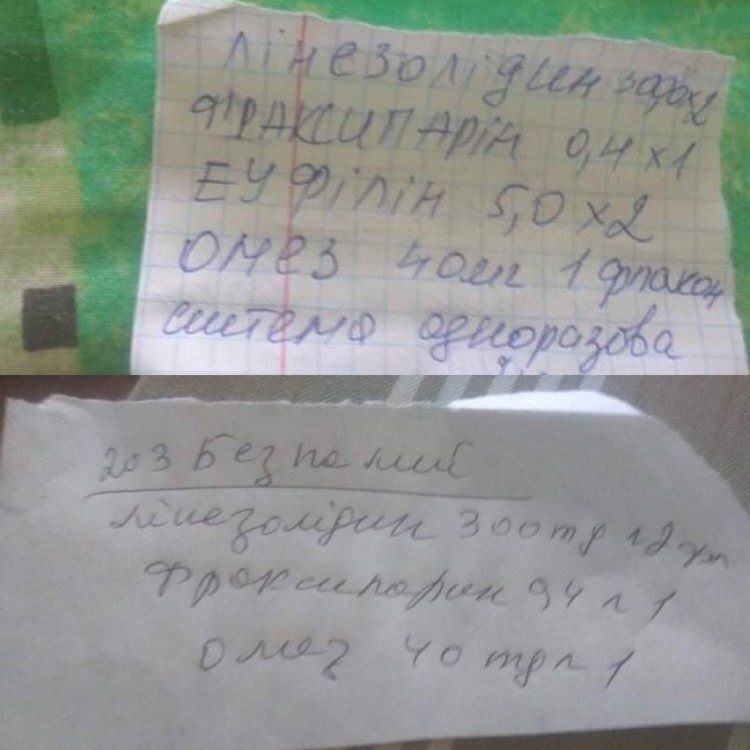 лінезолідин 300,0 x2
ФРАКСИПАРІН 0,4 x1
ЕУФІЛІН 5,0 x2
ОМЕЗ 40мг 1 флакон
система одноразова
203 Безпалий
лінезолідин 300
фраксипарин 0,4 n 1
омез 40 mg n 1